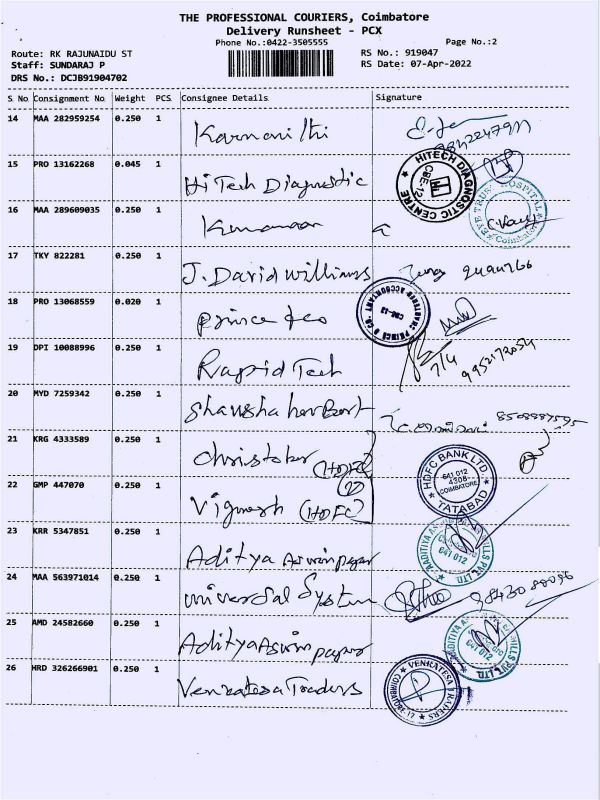 THE PROFESSIONAL COURIERS, Coimbatore
Delivery Runsheet - PCX
Phone No.:0422-3505555 Page No.:2
Route: RK RAJUNAIDU ST RS No.: 919047
Staff: SUNDARAJ P RS Date: 07-Apr-2022
DRS No.: DCJB91904702
S No Consignment No Weight PCS Consignee Details Signature
14 MAA 282959254 0.250 1
15 PRO 13162268 0.045 1 HiTech Diagnostic HITECH DIAGNOSTIC CENTRE CBE-12
16 MAA 289609035 0.250 1 EYE TRUST HOSPITAL Coimbatore
17 TKY 822281 0.250 1 J. David williams
18 PRO 13068559 0.020 1 prince & co PRINCE & CO. ACCOUNTANT CBE-12
19 DPI 10088996 0.250 1 Rapid Tech 7/4
20 MYD 7259342 0.250 1
21 KRG 4333589 0.250 1 Christober (HDFC) HDFC BANK LTD. 641 012 4308 COIMBATORE TATABAD
22 GMP 447070 0.250 1 Vignesh (HDFC)
23 KRR 5347851 0.250 1 Aditya Aswin paper 641 012
24 MAA 563971014 0.250 1 universal System
25 AMD 24582660 0.250 1 Aditya Aswin paper 641 012
26 HRD 326266901 0.250 1 Venkatesa Traders VENKATESA TRADERS